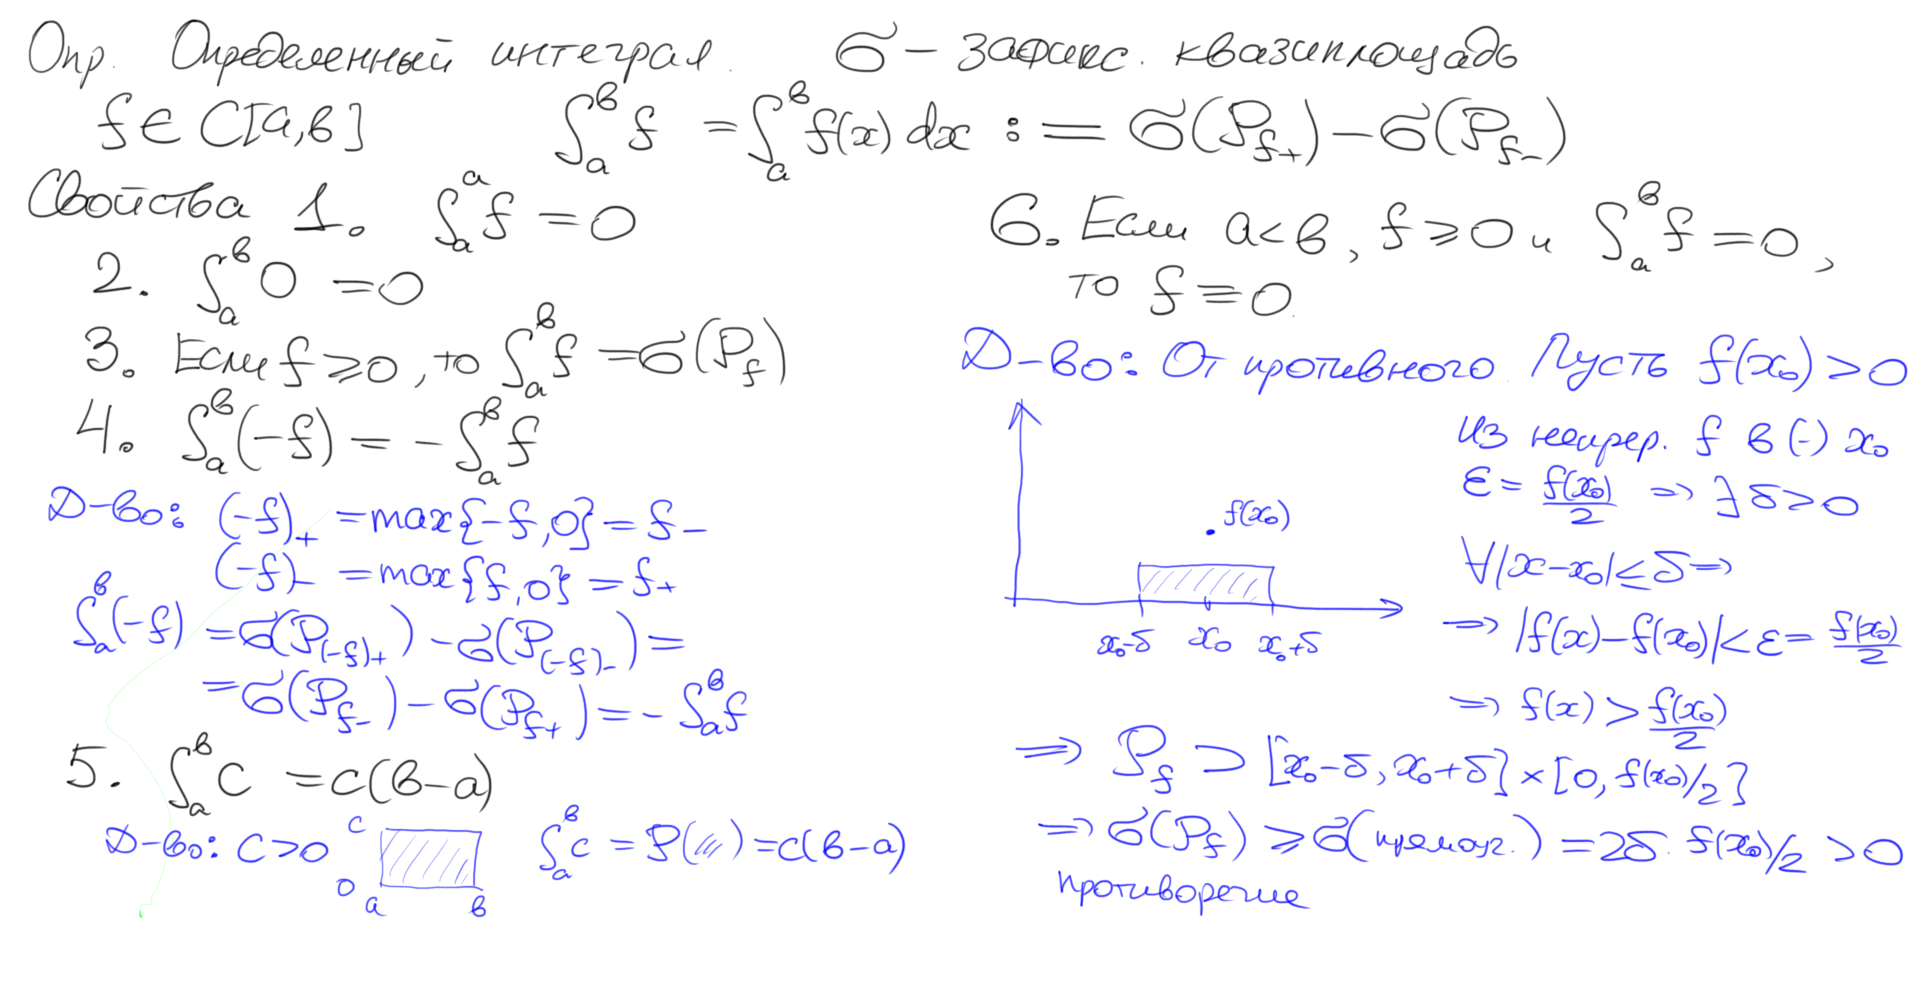 Опр. Определенный интеграл. σ – зафикс. квазиплощадь
f ∈ C[a,b] ∫_a^b f = ∫_a^b f(x) dx := σ(P_{f_+}) – σ(P_{f_-})
Свойства 1. ∫_a^a f = 0
2. ∫_a^b 0 = 0
3. Если f ⩾ 0, то ∫_a^b f = σ(P_f)
4. ∫_a^b (–f) = – ∫_a^b f
Д-во: (–f)_+ = max{–f, 0} = f_-
(–f)_- = max{f, 0} = f_+
∫_a^b (–f) = σ(P_{(-f)_+}) – σ(P_{(-f)_-}) =
= σ(P_{f_-}) – σ(P_{f_+}) = – ∫_a^b f
5. ∫_a^b c = c(b–a)
Д-во: c > 0 ∫_a^b c = P(///) = c(b–a)
c
0
a b
6. Если a < b, f ⩾ 0 и ∫_a^b f = 0,
то f ≡ 0.
Д-во: От противного. Пусть f(x₀) > 0
Из непрер. f в (·) x₀
ε = f(x₀)/2 ⇒ ∃ δ > 0
∀ |x–x₀| ≤ δ ⇒
⇒ |f(x) – f(x₀)| < ε = f(x₀)/2
⇒ f(x) > f(x₀)/2
f(x₀)
x₀-δ x₀ x₀+δ
⇒ P_f ⊃ [x₀–δ, x₀+δ] × [0, f(x₀)/2]
⇒ σ(P_f) ⩾ σ(прямоуг.) = 2δ · f(x₀)/2 > 0
противоречие